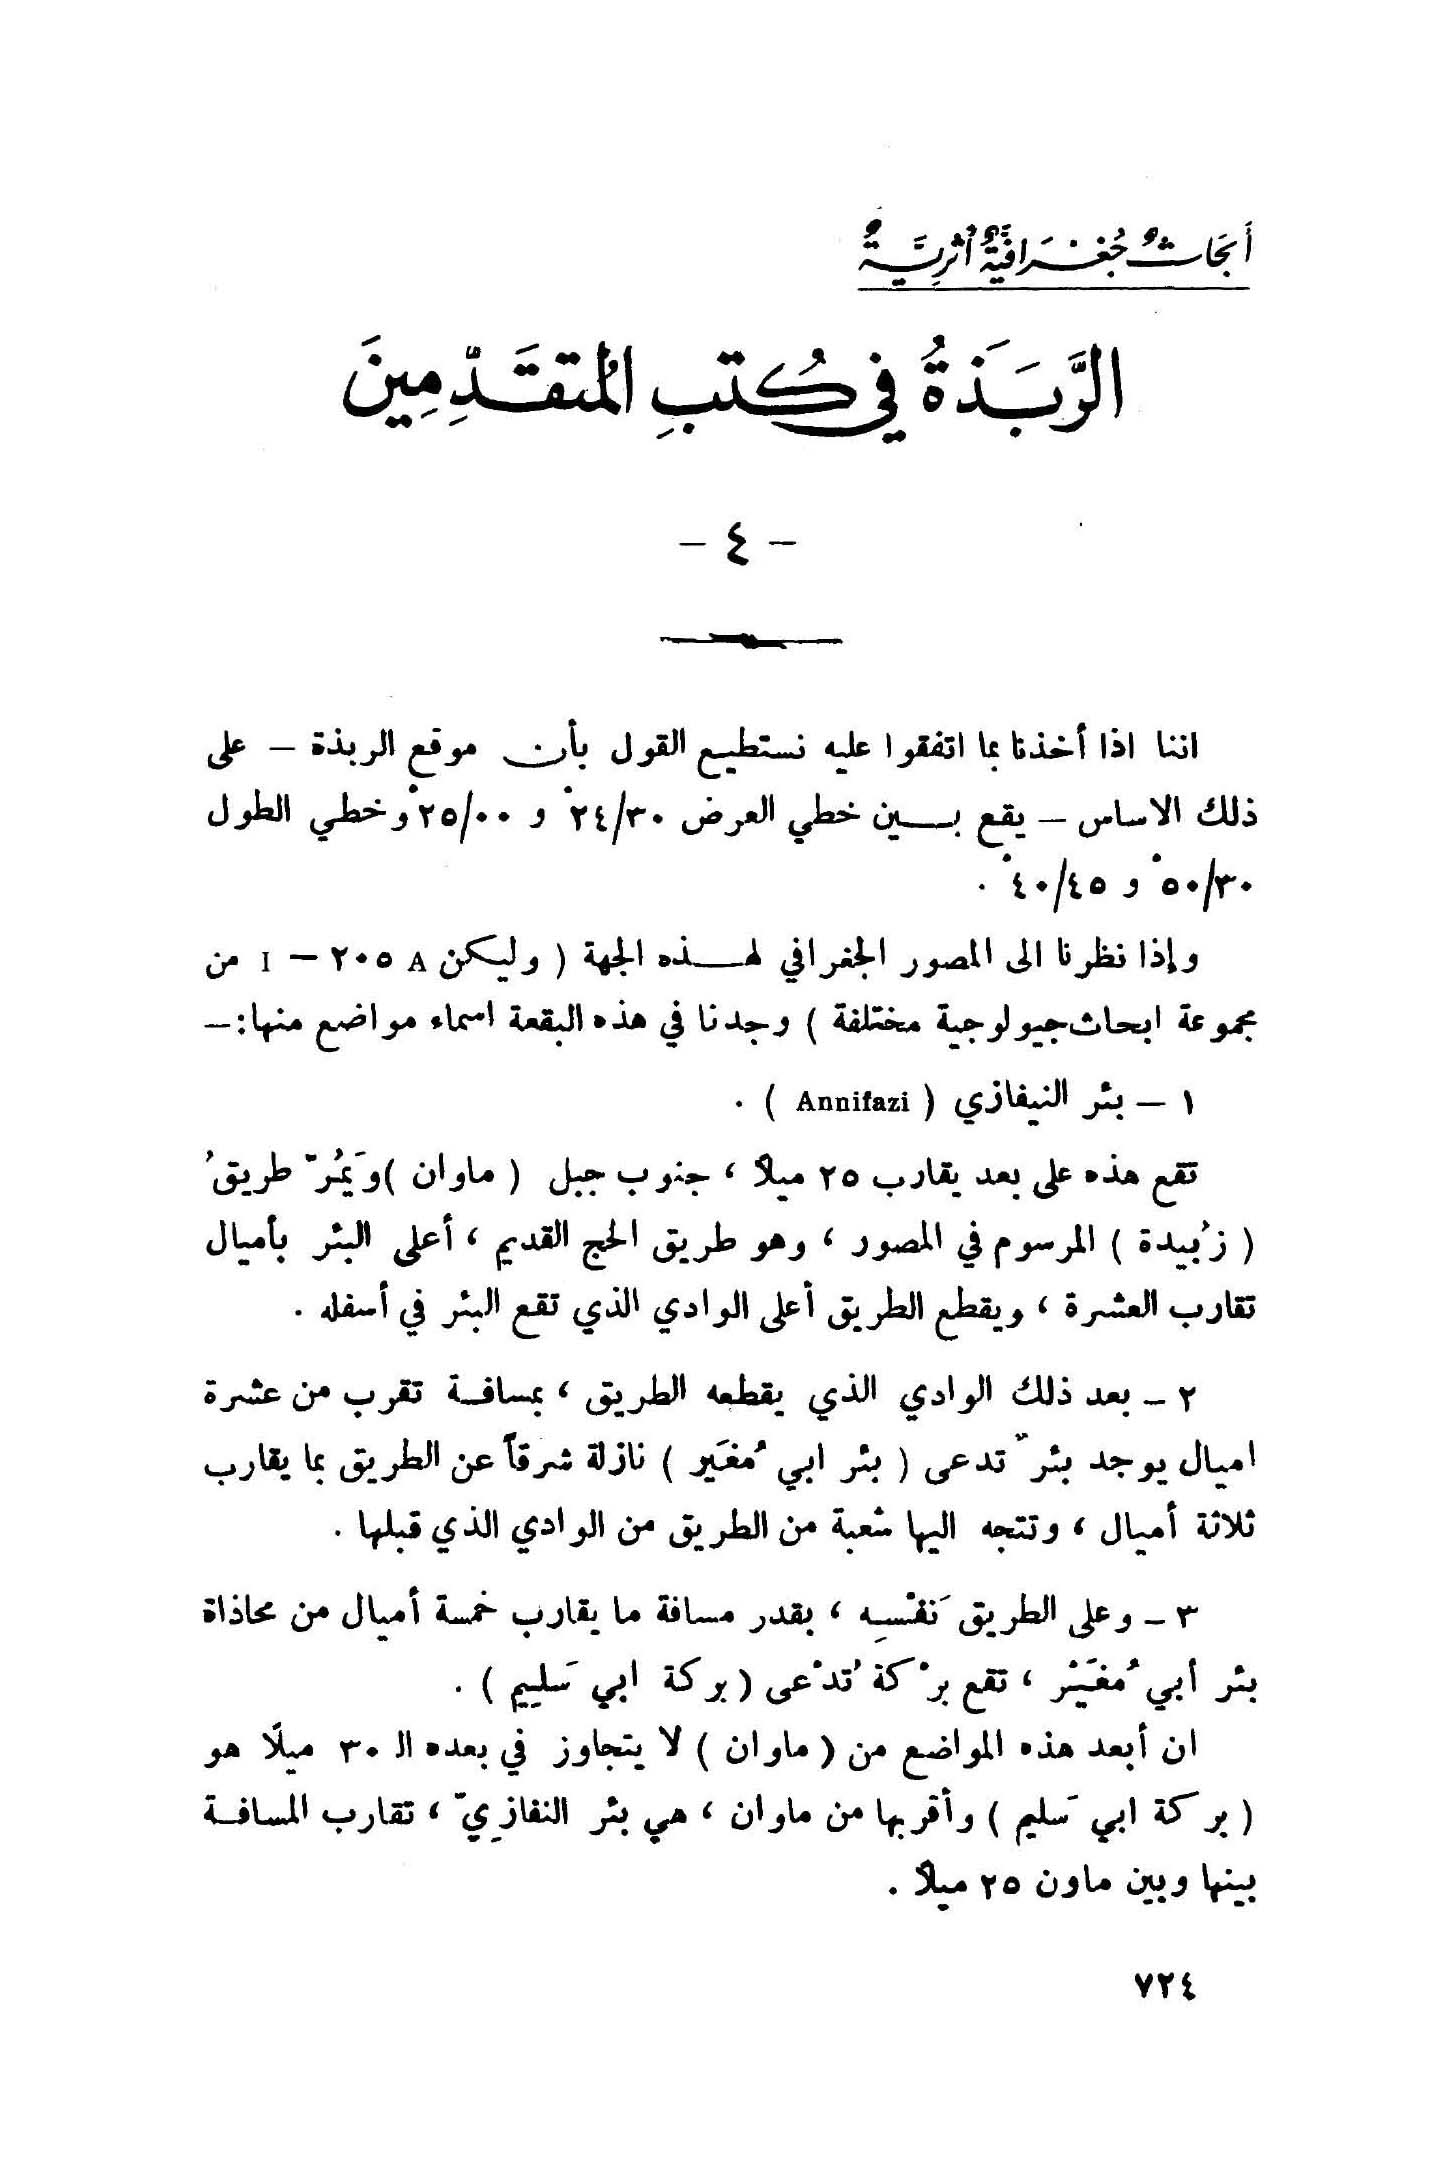 أبحاثٌ جُغرَافيَّةٌ أثريَّةٌ
الرَّبَذَةُ في كُتبِ المُتقَدِّمِينَ
- ٤ -
اننا اذا أخذنا بما اتفقوا عليه نستطيع القول بأن موقع الربذة – على
ذلك الاساس – يقع بين خطي العرض ٢٤/٣٠° و ٢٥/٠٠° وخطي الطول
٥٠/٣٠° و ٤٠/٤٥° .
وإذا نظرنا الى المصور الجغرافي لهذه الجهة ( وليكن A ٢٠٥ – I من
مجموعة ابحاث جيولوجية مختلفة ) وجدنا في هذه البقعة اسماء مواضع منها:–
١ – بئر النيفازي ( Annifazi ) .
تقع هذه على بعد يقارب ٢٥ ميلاً ، جنوب جبل ( ماوان )وَيَمُرّ طريقُ
( زُبيدة ) المرسوم في المصور ، وهو طريق الحج القديم ، أعلى البئر بأميال
تقارب العشرة ، ويقطع الطريق أعلى الوادي الذي تقع البئر في أسفله .
٢ – بعد ذلك الوادي الذي يقطعه الطريق ، بمسافة تقرب من عشرة
اميال يوجد بئرٌ تدعى ( بئر ابي مُغَير ) نازلة شرقاً عن الطريق بما يقارب
ثلاثة أميال ، وتتجه اليها شعبة من الطريق من الوادي الذي قبلها .
٣ – وعلى الطريق نَفْسِه ، بقدر مسافة ما يقارب خمسة أميال من محاذاة
بئر أبي مُغَيْر ، تقع برْكة تُدْعى ( بركة ابي سَلِيم ) .
ان أبعد هذه المواضع من ( ماوان ) لا يتجاوز في بعده الـ ٣٠ ميلًا هو
( بركة ابي سَليم ) وأقربها من ماوان ، هي بئر النفازِيّ ، تقارب المسافة
بينها وبين ماون ٢٥ ميلاً .
٧٢٤